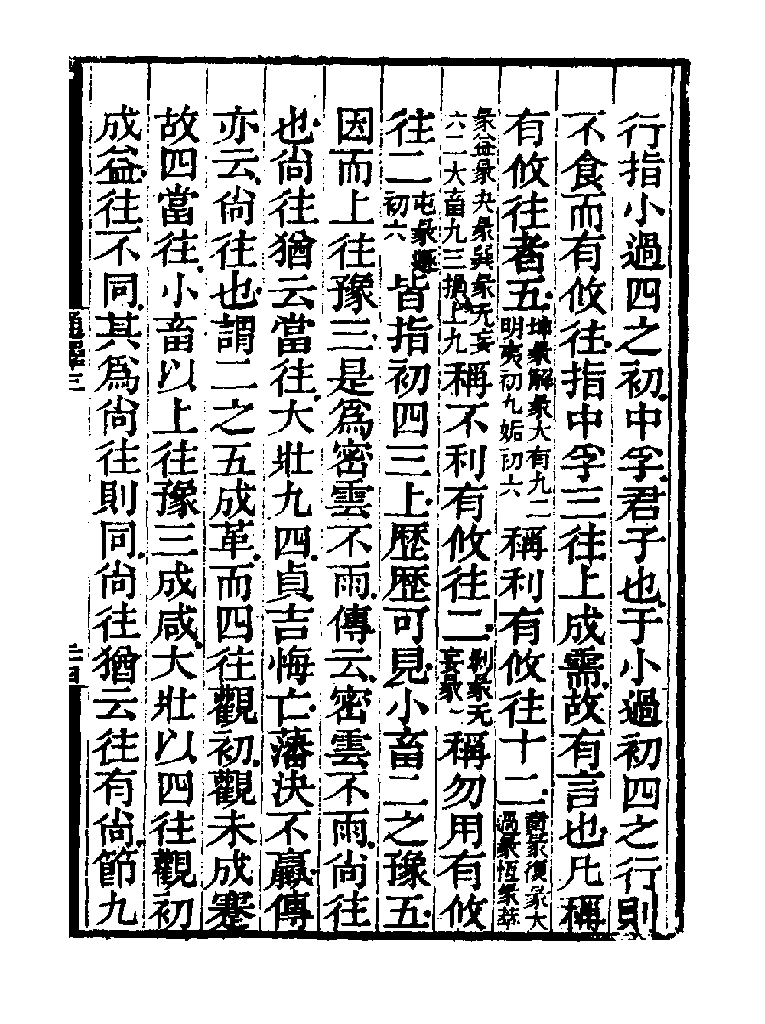 行指小過四之初中孚君子也于小過初四之行則
不食而有攸往指中孚三往上成需故有言也凡稱
有攸往者五坤彖解彖大有九二明夷初九姤初六稱利有攸往十二賁彖復彖大過彖恆彖萃
彖益彖夬彖巽彖无妄六二大畜九三損上九稱不利有攸往二剝彖无妄彖稱勿用有攸
往二屯彖遯初六皆指初四三上歷歷可見小畜二之豫五
因而上往豫三是爲密雲不雨傳云密雲不雨尚往
也尚往猶云當往大壯九四貞吉悔亡藩決不羸傳
亦云尚往也謂二之五成革而四往觀初觀未成蹇
故四當往小畜以上往豫三成咸大壯以四往觀初
成益往不同其爲尚往則同尚往猶云往有尚節九
通釋三